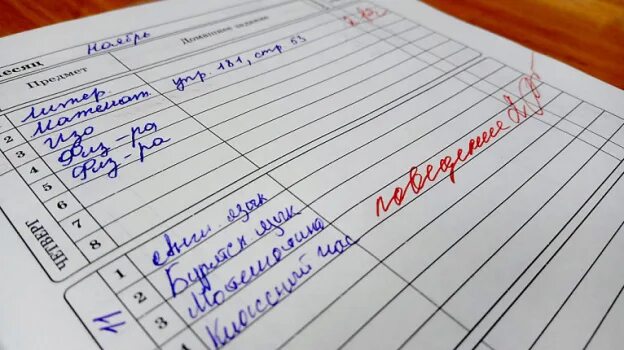 месяц Ноябрь
Предмет Домашнее задание
1 Литер.
2 Математ. упр. 181, стр. 53
3 Изо
4 Физ-ра
5 Физ-ра
6
7
8
ЧЕТВЕРГ
1 Англ. язык
2 Бурятск язык
3 Математика
Классный час
11
поведение